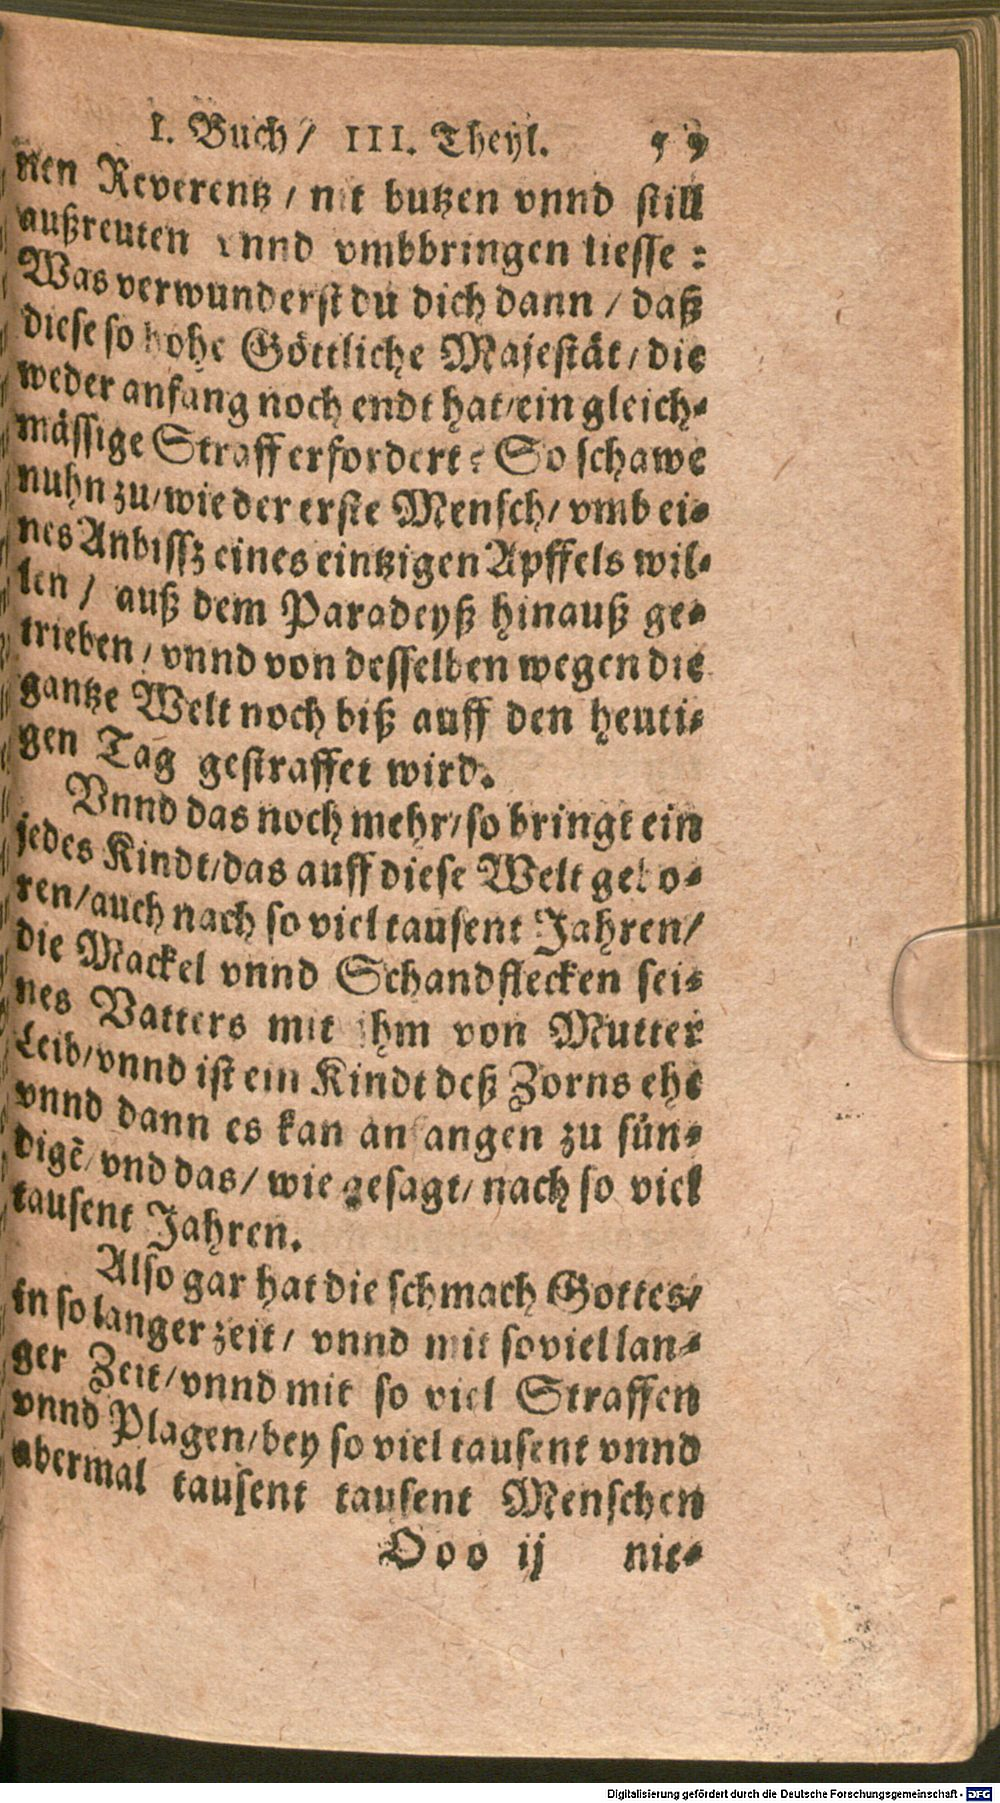 I. Buch/ III. Theyl. 59
nen Reverentz / mit butzen vnnd still
außreuten vnnd vmbbringen liesse:
Was verwunderst du dich dann / daß
diese so hohe Göttliche Majestät/ die
weder anfang noch endt hat/ ein gleich-
mässige Straff erfordert? So schawe
nuhn zu/ wie der erste Mensch/ vmb ei-
nes Anbissz eines eintzigen Apffels wil-
len / auß dem Paradeyß hinauß ge-
trieben / vnnd von desselben wegen die
gantze Welt noch biß auff den heuti-
gen Tag gestraffet wird.
Vnnd das noch mehr/ so bringt ein
jedes Kindt/ das auff diese Welt gebo-
ren/ auch nach so viel tausent Jahren/
die Mackel vnnd Schandflecken sei-
nes Vatters mit ihm von Mutter
Leib/ vnnd ist ein Kindt deß Zorns ehe
vnnd dann es kan anfangen zu sün-
digẽ/ vnd das/ wie gesagt/ nach so viel
tausent Jahren.
Also gar hat die schmach Gottes/
in so langer zeit/ vnnd mit so viel lan-
ger Zeit/ vnnd mit so viel Straffen
vnnd Plagen/ bey so viel tausent vnnd
abermal tausent tausent Menschen
Ooo ij nie-
Digitalisierung gefördert durch die Deutsche Forschungsgemeinschaft - DFG